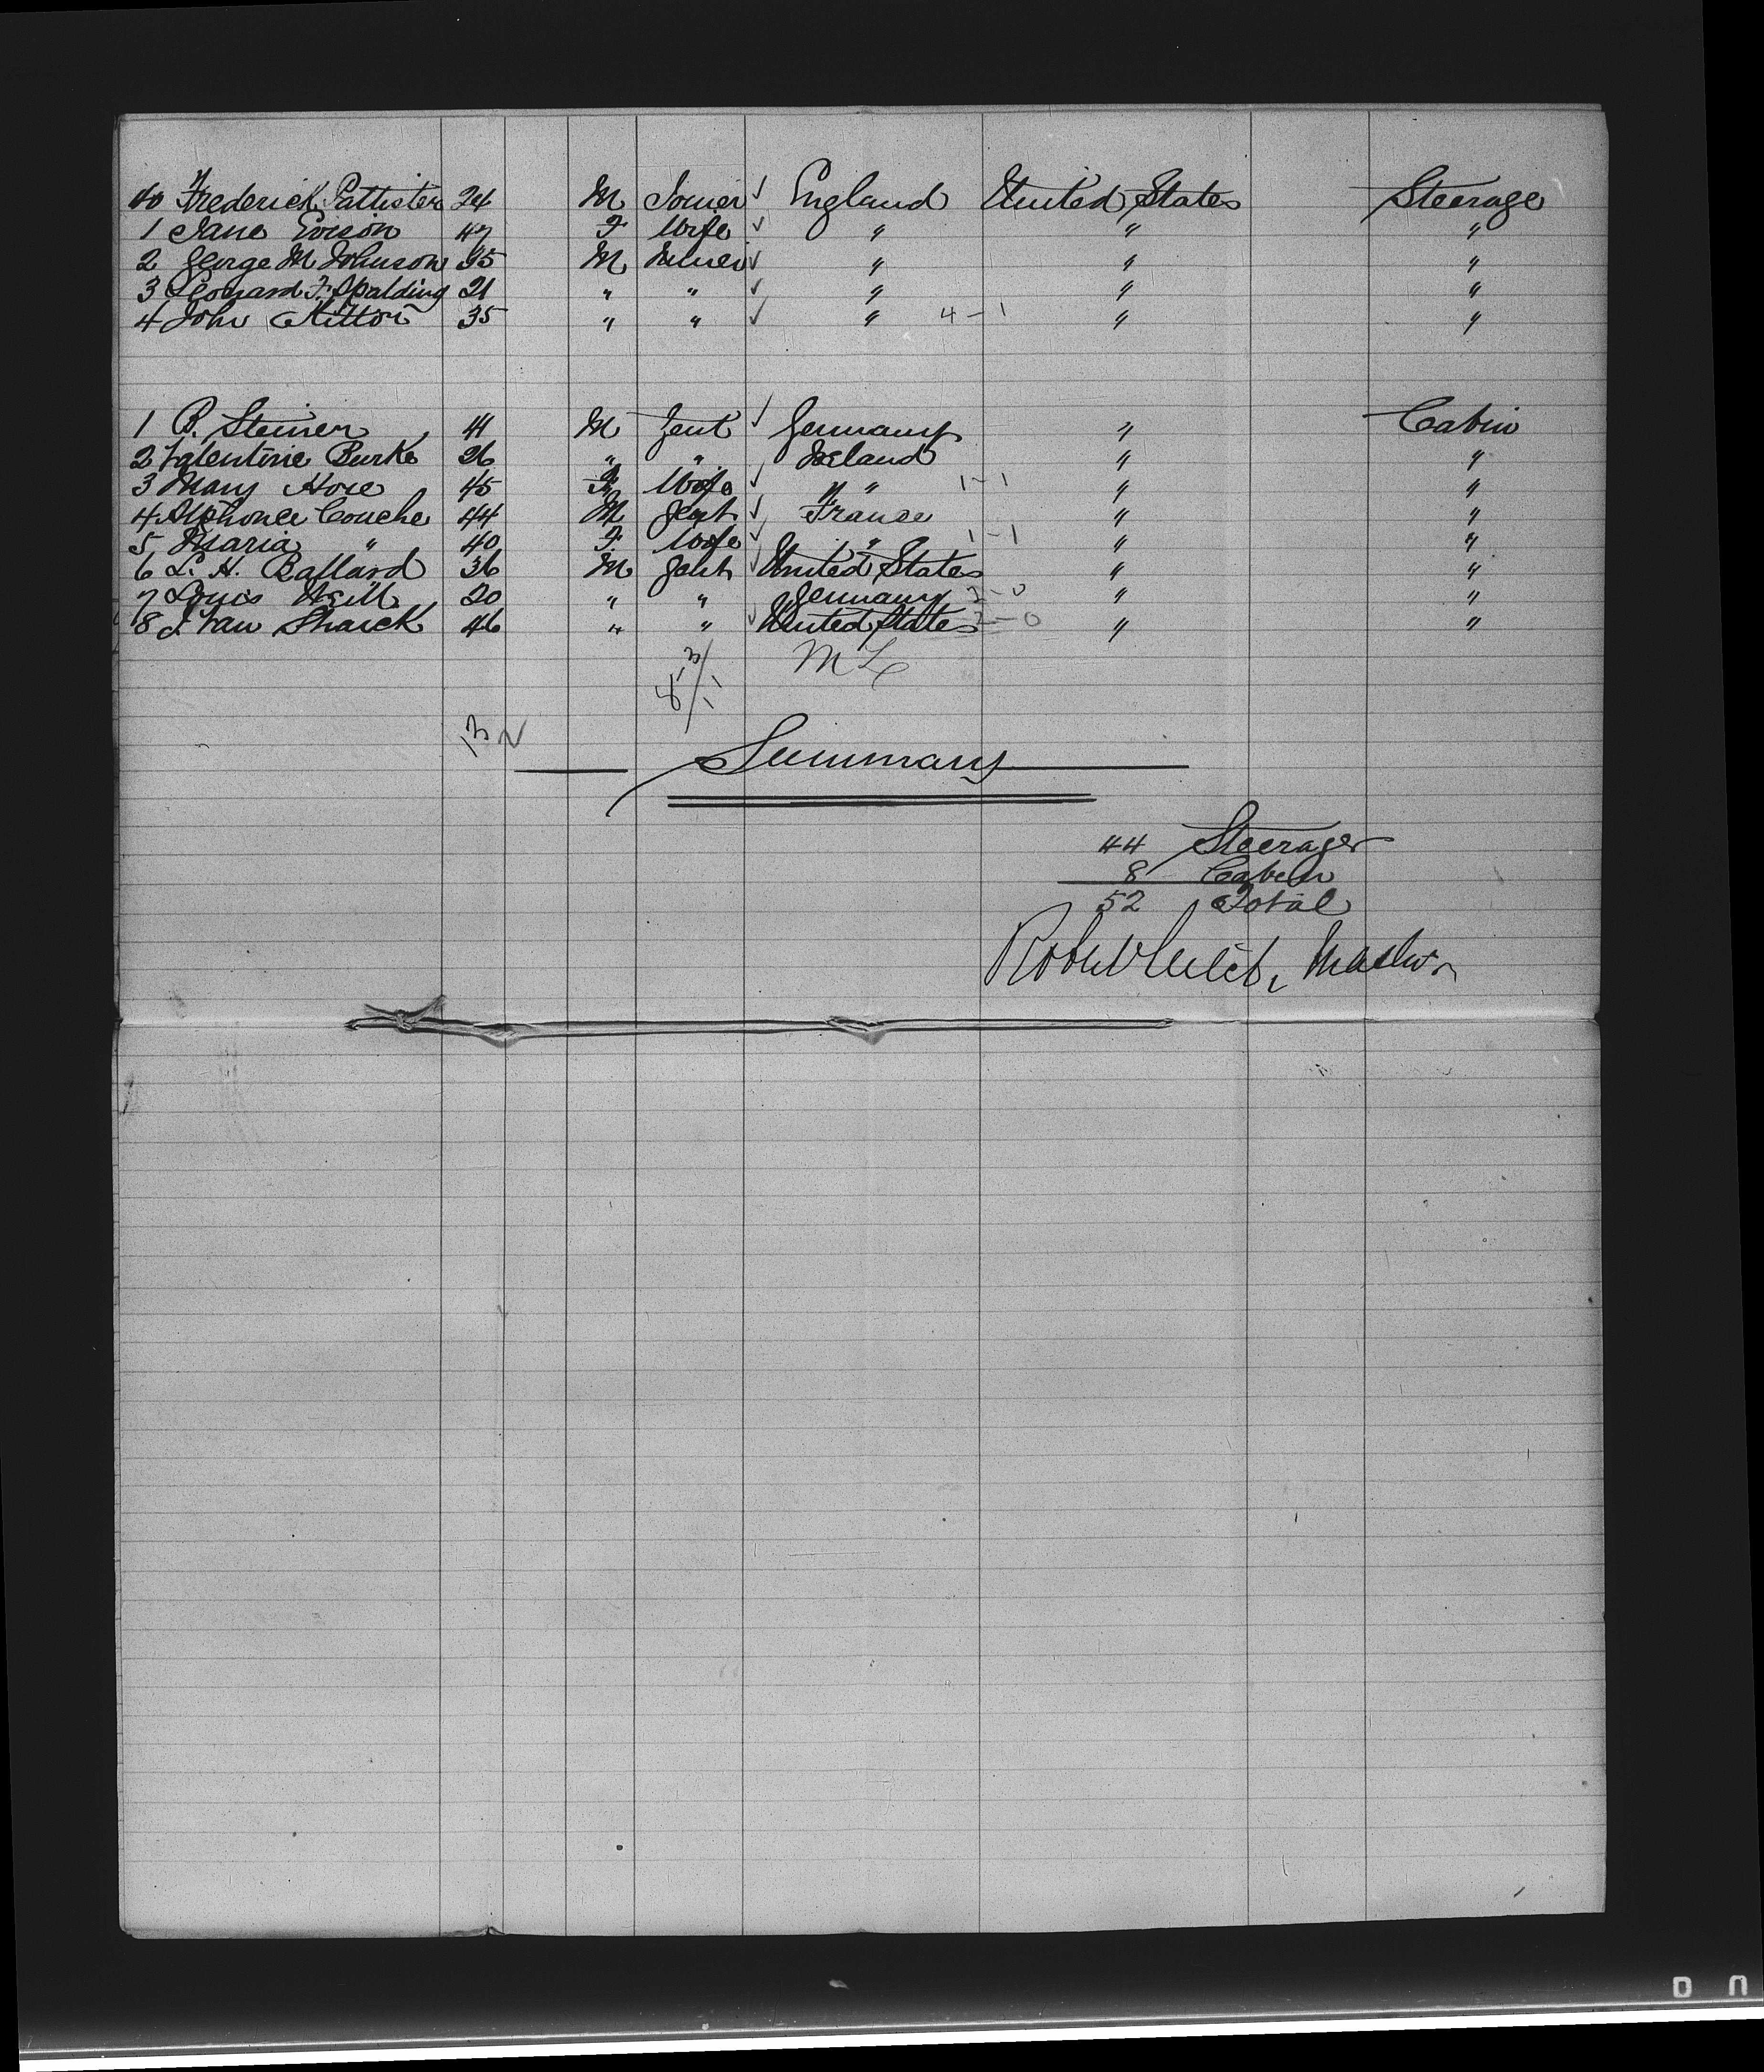 40 Frederick Pattister 24 M Joiner ✓ England United States Steerage
1 Jane Evison 47 F Wife ✓ " " "
2 George M Johnson 35 M Miner ✓ " " "
3 Leonard F. Spalding 21 " " ✓ " " "
4 John Mitton 35 " " ✓ " 4-1 " "
1 B. Steiner 41 M Gent ✓ Germany " Cabin
2 Valentine Burke 26 " " Ireland " "
3 Mary Hore 45 F Wife ✓ " " 1-1 " "
4 Alphonse Couche 44 M Gent ✓ France " "
5 Maria " 40 F Wife ✓ " 1-1 " "
6 L. H. Ballard 36 M Gent ✓ United States " "
7 Louis Weill 20 " " Germany 2-0 " "
8 J. Van Shaick 46 " " ✓ United States 2-0 " "
ML
8 3/11
13 ✓
Summary
44 Steerage
8 Cabin
52 Total
Master